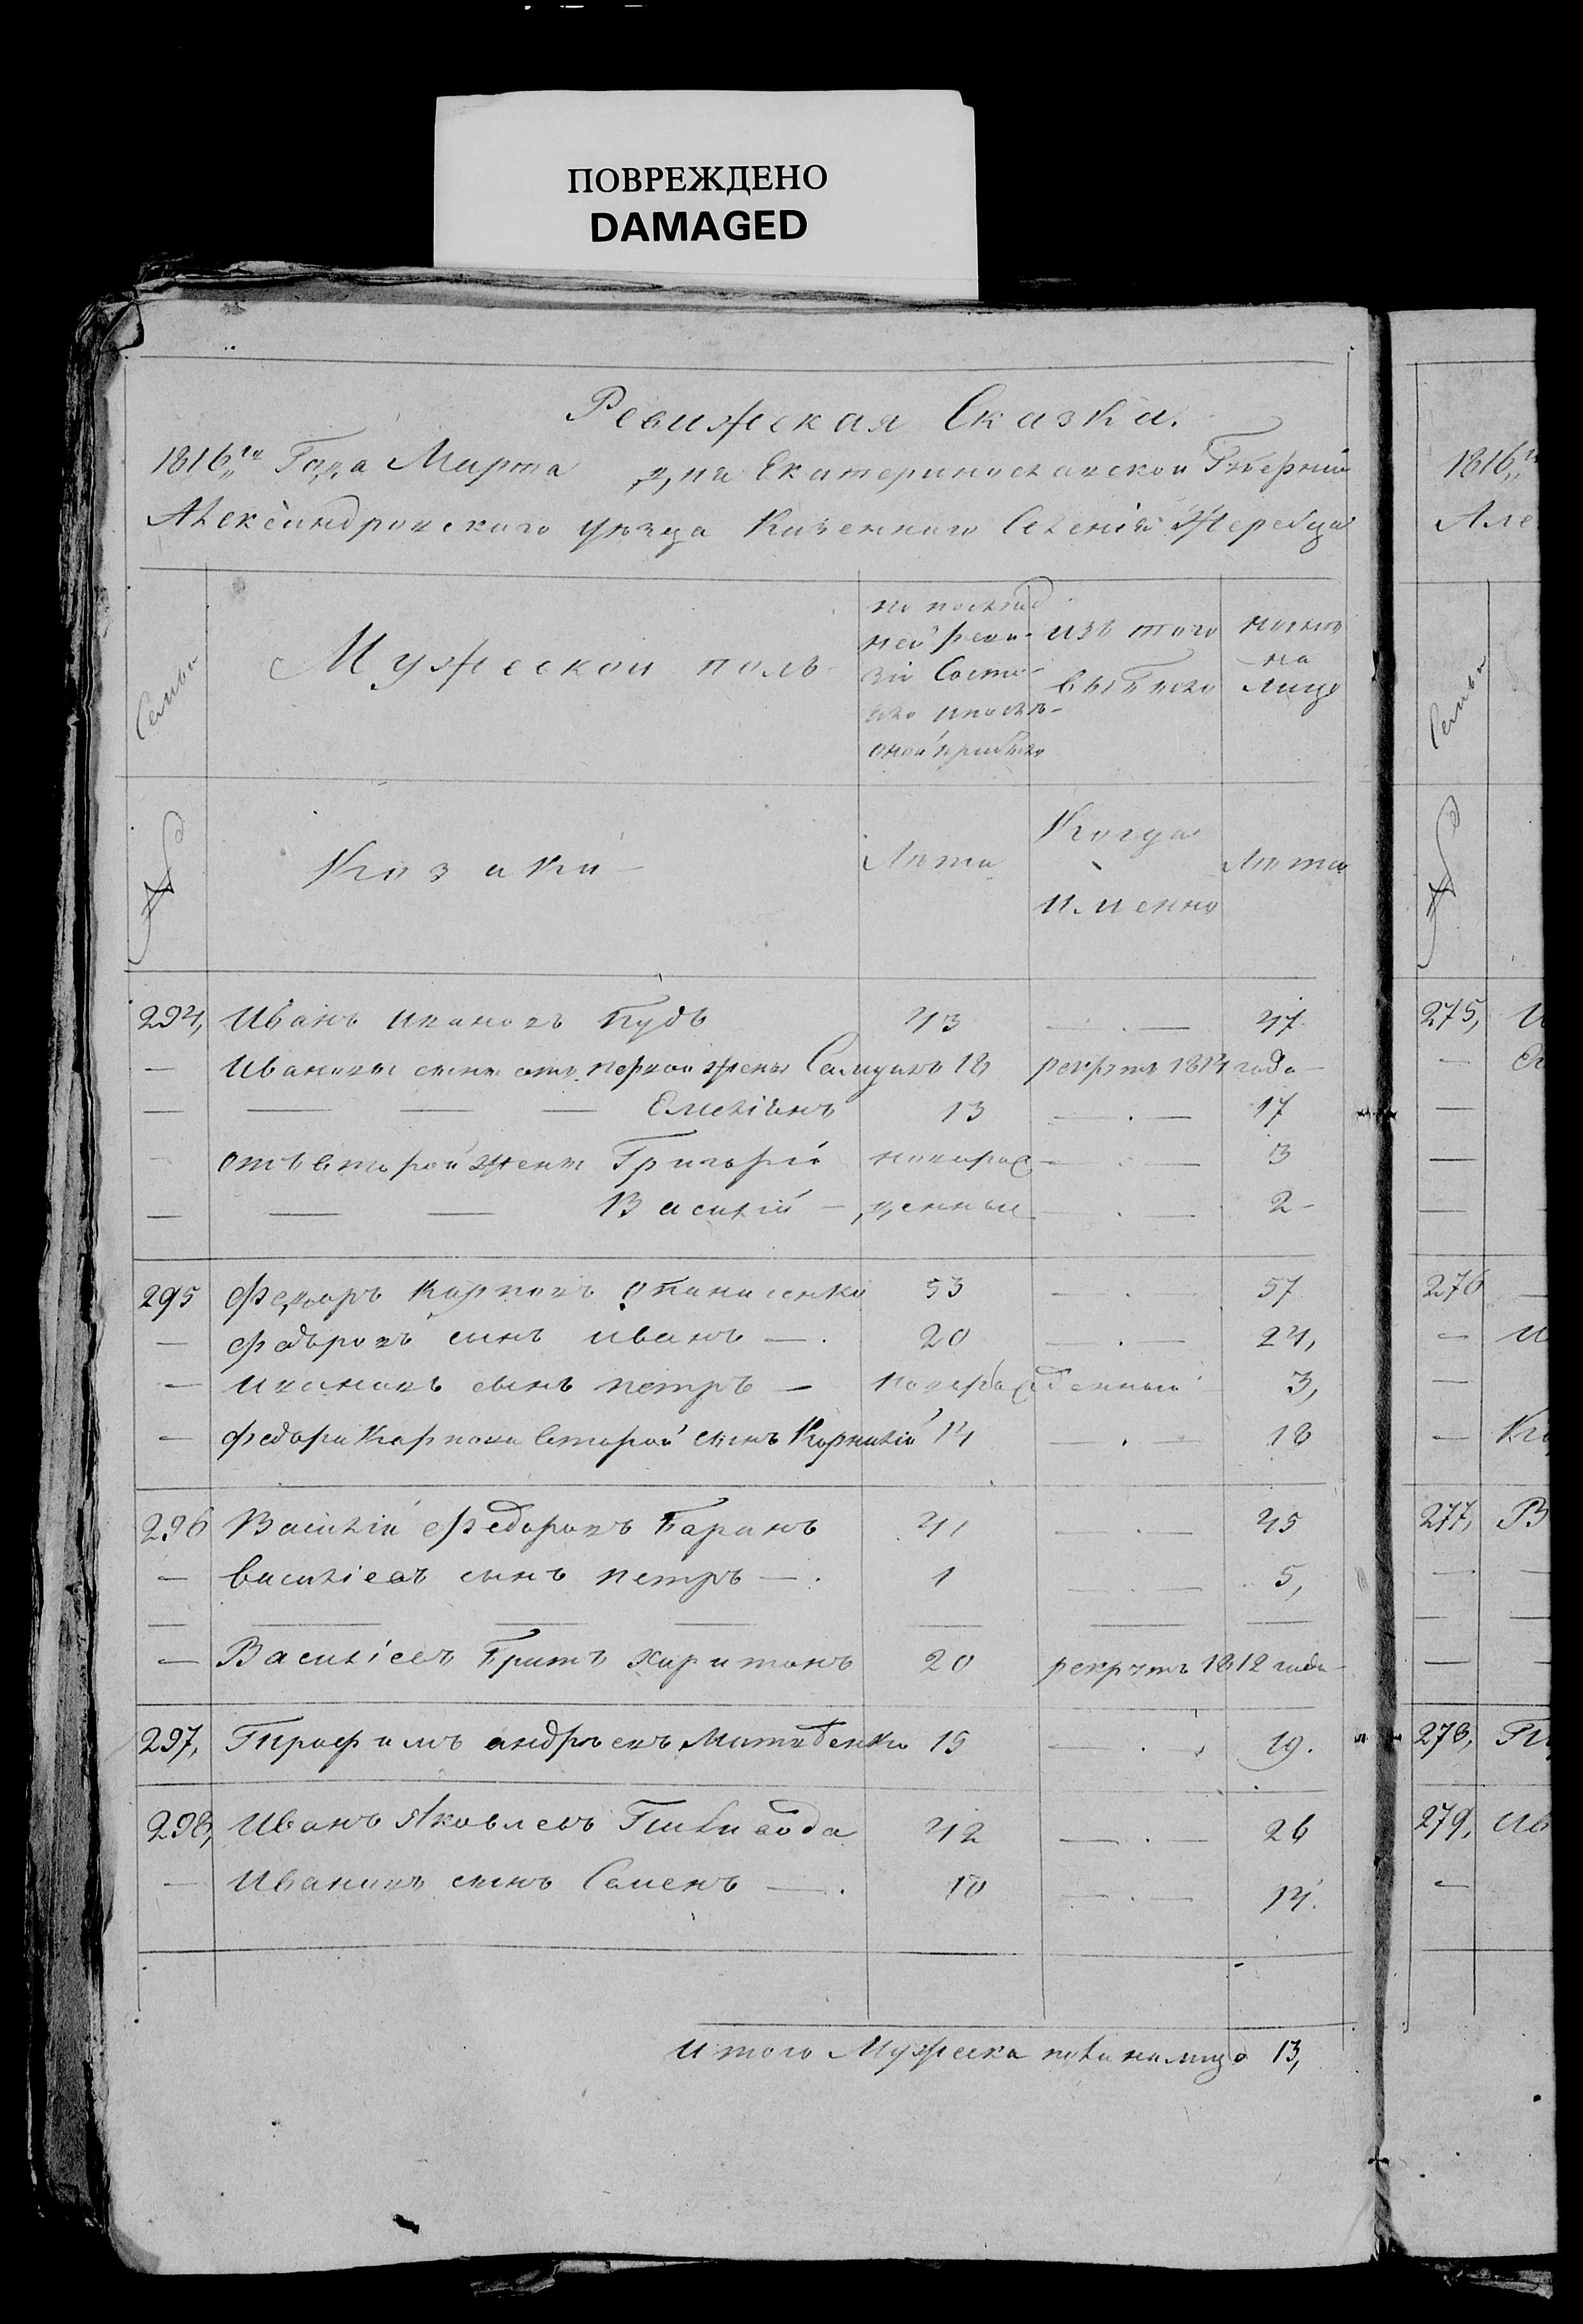 ПОВРЕЖДЕНО
DAMAGED
Ревижская Сказка.
1816го Года Марта дня Екатеринославской Губерній
Александровского уезда Казенного Селенія Жеребца
Семьи
Мужеской полъ
по послед
ней реви-
зіи Состо-
яло и после
оной прибыло
изъ того
выбыло
ныне
на
лицо
№
Козаки
Лета
Когда
именно
Лета
294, Иванъ Ивановъ Кудь 43 — . — 47
— Ивановы сыны отъ первой жены Самуилъ 18 рекрутъ 1814 года —
— — — — Емеліянъ 13 — . — 17
отъ второй жены Григорій новорож — . — 3
— — — Василій — денные — . — 2 -
295 Федоръ Карповъ Опанасенко 53 — . — 57
— Федоровъ сынъ иванъ — . 20 — . — 24,
— Ивановъ сынъ петръ — новорожденный 3,
— Федора Карпова второй сынъ Корнилій 14 — . — 18
296 Василій Федоровъ Баранъ 41 — . — 45
— василіевъ сынъ петръ — . 1 — . — 5,
— Василіевъ братъ харитонъ 20 рекрутъ 1812 года —
297, Трофимъ андреевъ 15 — . — 19.
298, Иванъ Яковлевъ 42 — . — 26
— Ивановъ сынъ Семенъ — . 10 — . — 14.
итого Мужеска пола налицо 13,
1816
Але
Семьи
№
275, И
276
277, В
278,
279, Ив